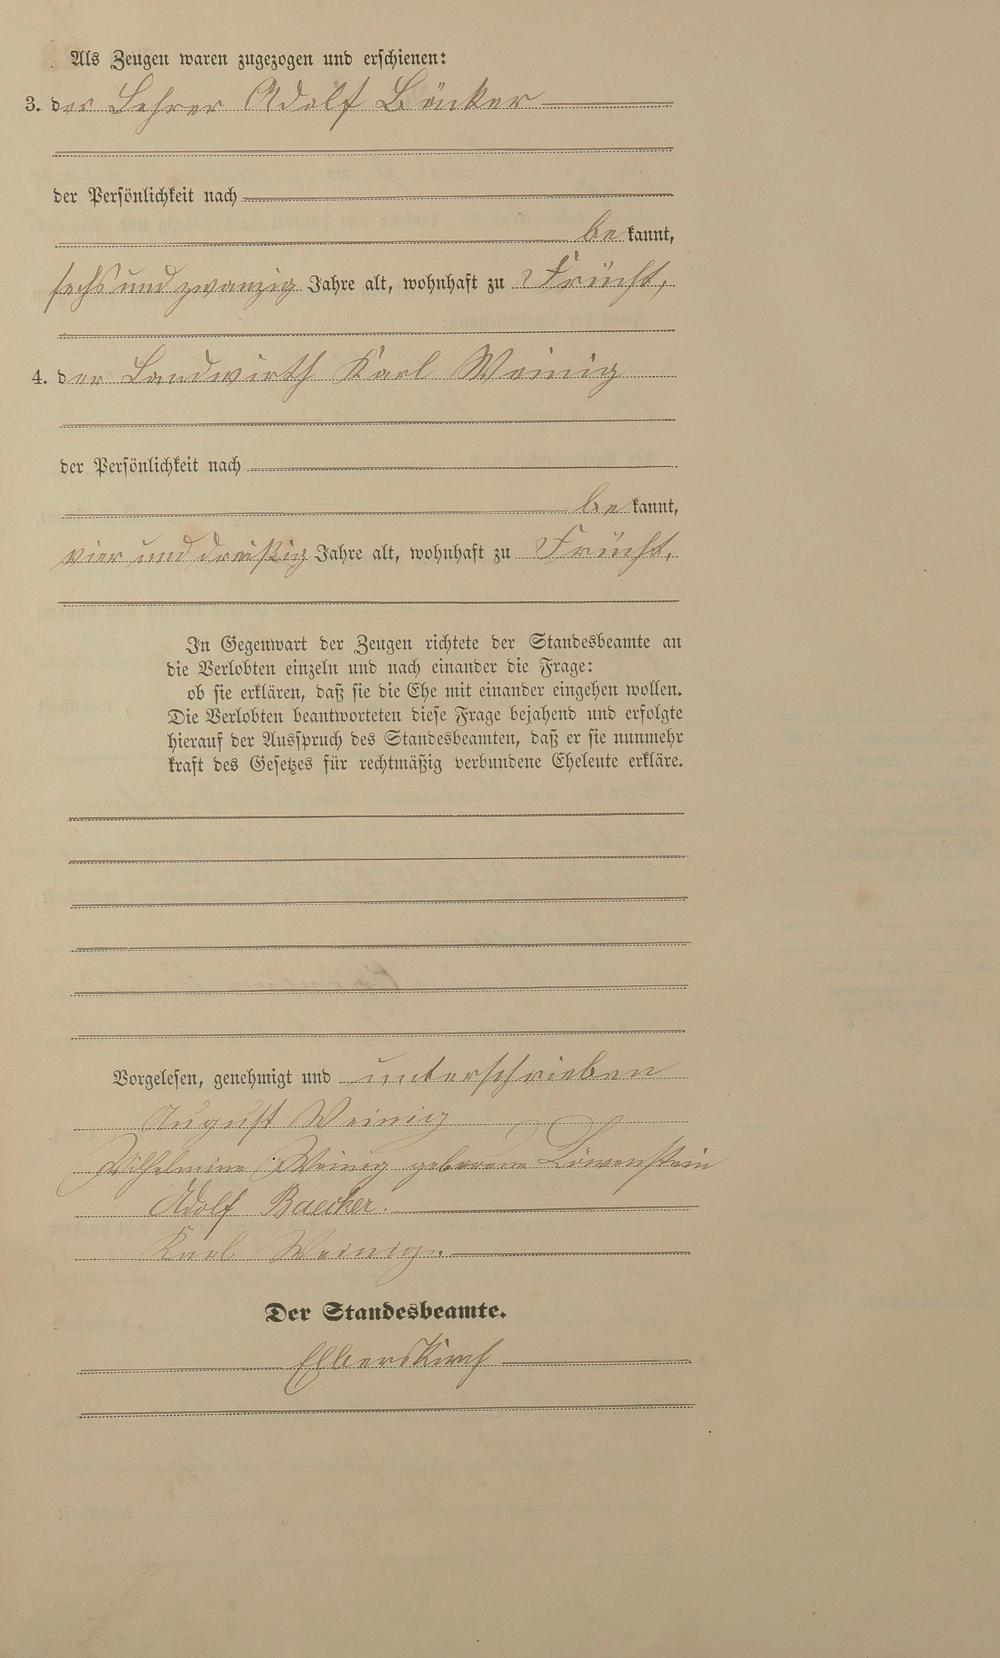 Als Zeugen waren zugezogen und erschienen:
3. der Lehrer Adolf Bäcker
der Persönlichkeit nach
be kannt,
sechs und zwanzig Jahre alt, wohnhaft zu Frücht,
4. der Landwirth Karl Weinig
der Persönlichkeit nach
be kannt,
vier und dreißig Jahre alt, wohnhaft zu Frücht.
In Gegenwart der Zeugen richtete der Standesbeamte an
die Verlobten einzeln und nach einander die Frage:
ob sie erklären, daß sie die Ehe mit einander eingehen wollen.
Die Verlobten beantworteten diese Frage bejahend und erfolgte
hierauf der Ausspruch des Standesbeamten, daß er sie nunmehr
kraft des Gesetzes für rechtmäßig verbundene Eheleute erkläre.
Vorgelesen, genehmigt und unterschrieben
August Weinig
Wilhelmine Weinig geborene Löwenstein
Adolf Baecker.
Karl Weinig.
Der Standesbeamte.
Elberskirch